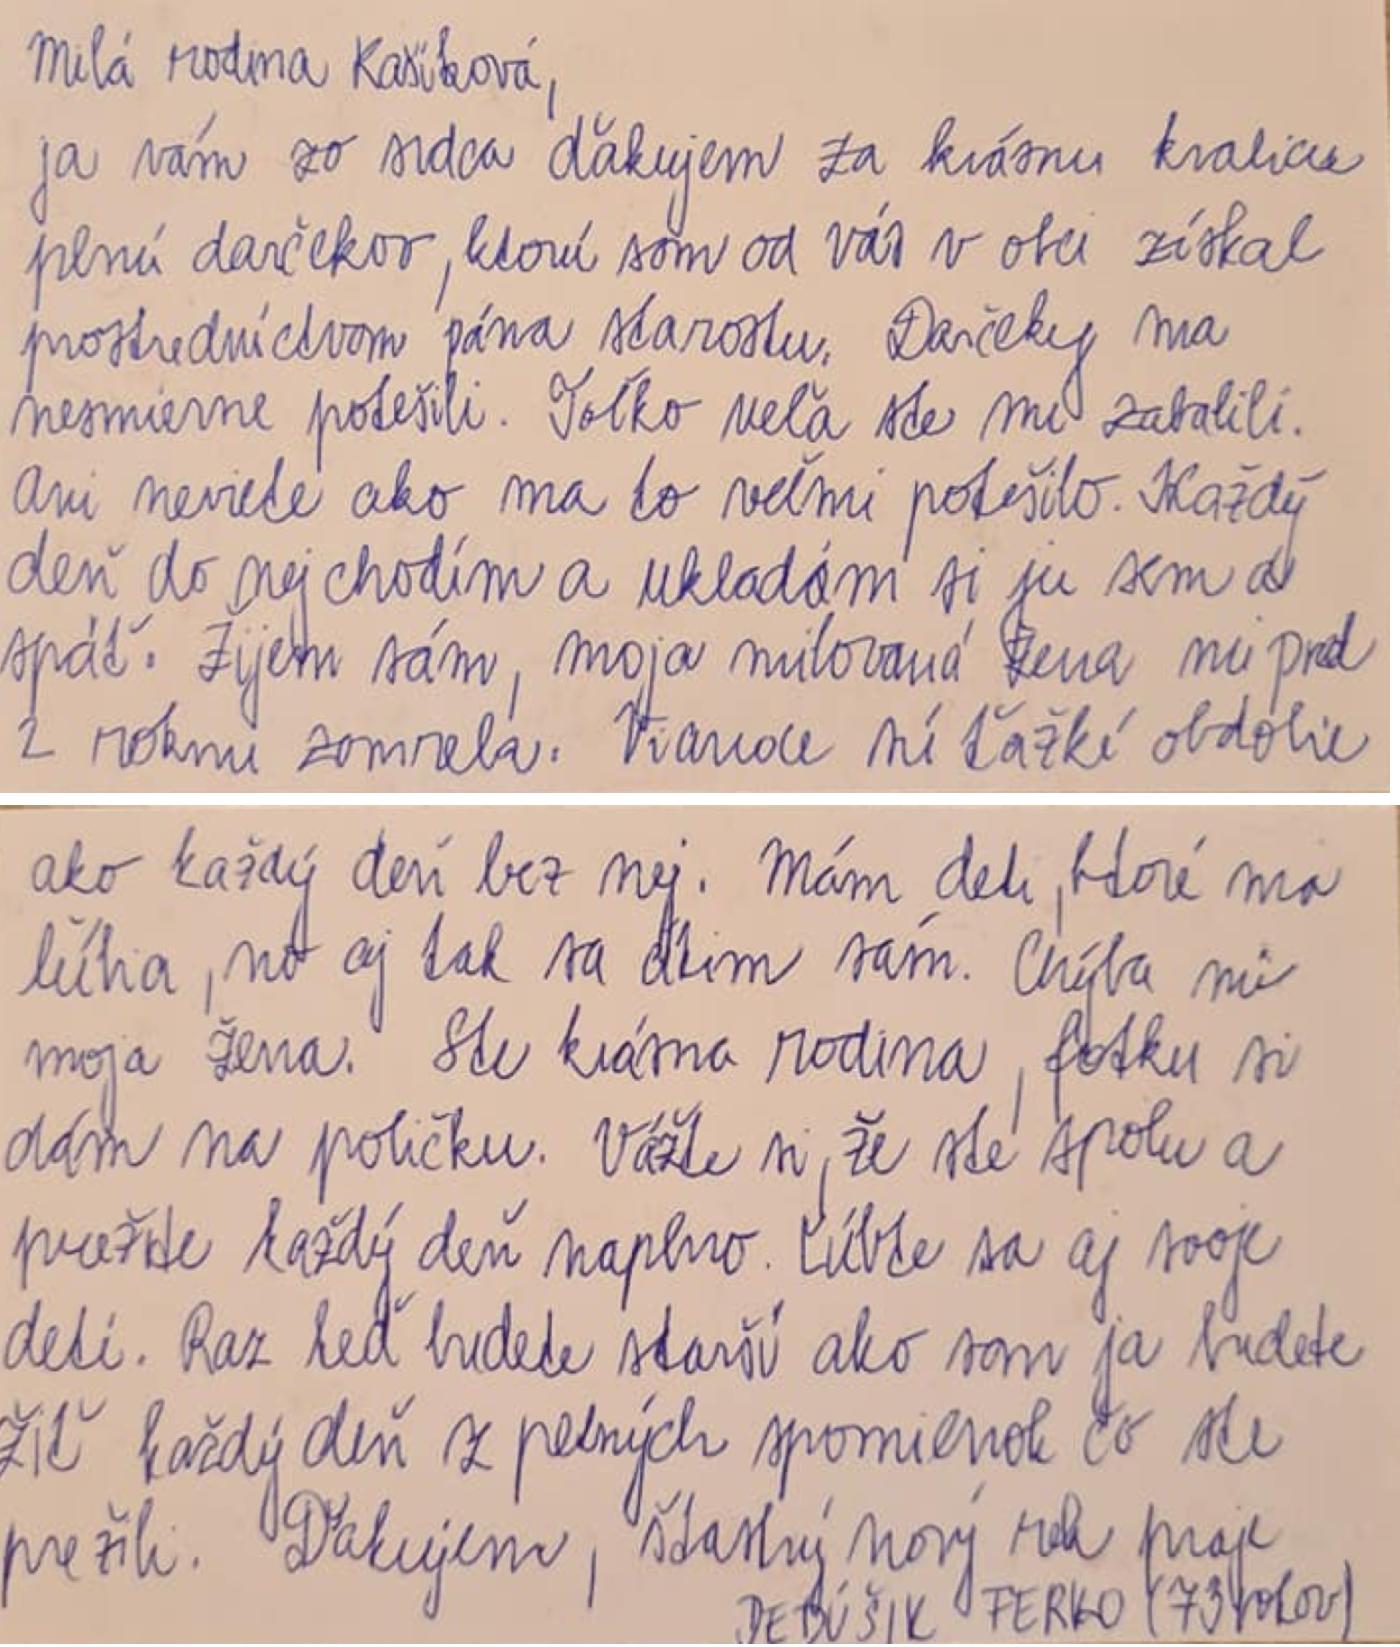 Milá rodina Kašíková,
ja vám zo srdca ďakujem za krásnu kraličcu
plnú darčekov, ktorú som od vás v obci získal
prostredníctvom pána starostu. Darčeky ma
nesmierne potešili. Toľko veľa ste mi zabalili.
Ani neviete ako ma to veľmi potešilo. Každý
deň do nej chodím a ukladám si ju sem a
späť. Žijem sám, moja milovaná žena mi pred
2 rokmi zomrela. Vianoce sú ťažké obdobie
ako každý deň bez nej. Mám deti, ktoré ma
ľúbia, no aj tak sa cítim sám. Chýba mi
moja žena. Ste krásna rodina, fotku si
dám na poličku. Vážte si, že ste spolu a
prežite každý deň naplno. Ľúbte sa aj svoje
deti. Raz keď budete starší ako som ja budete
žiť každý deň z pekných spomienok čo ste
prežili. Ďakujem, šťastný nový rok praje
DEBÚŠIK FERKO (73 rokov)